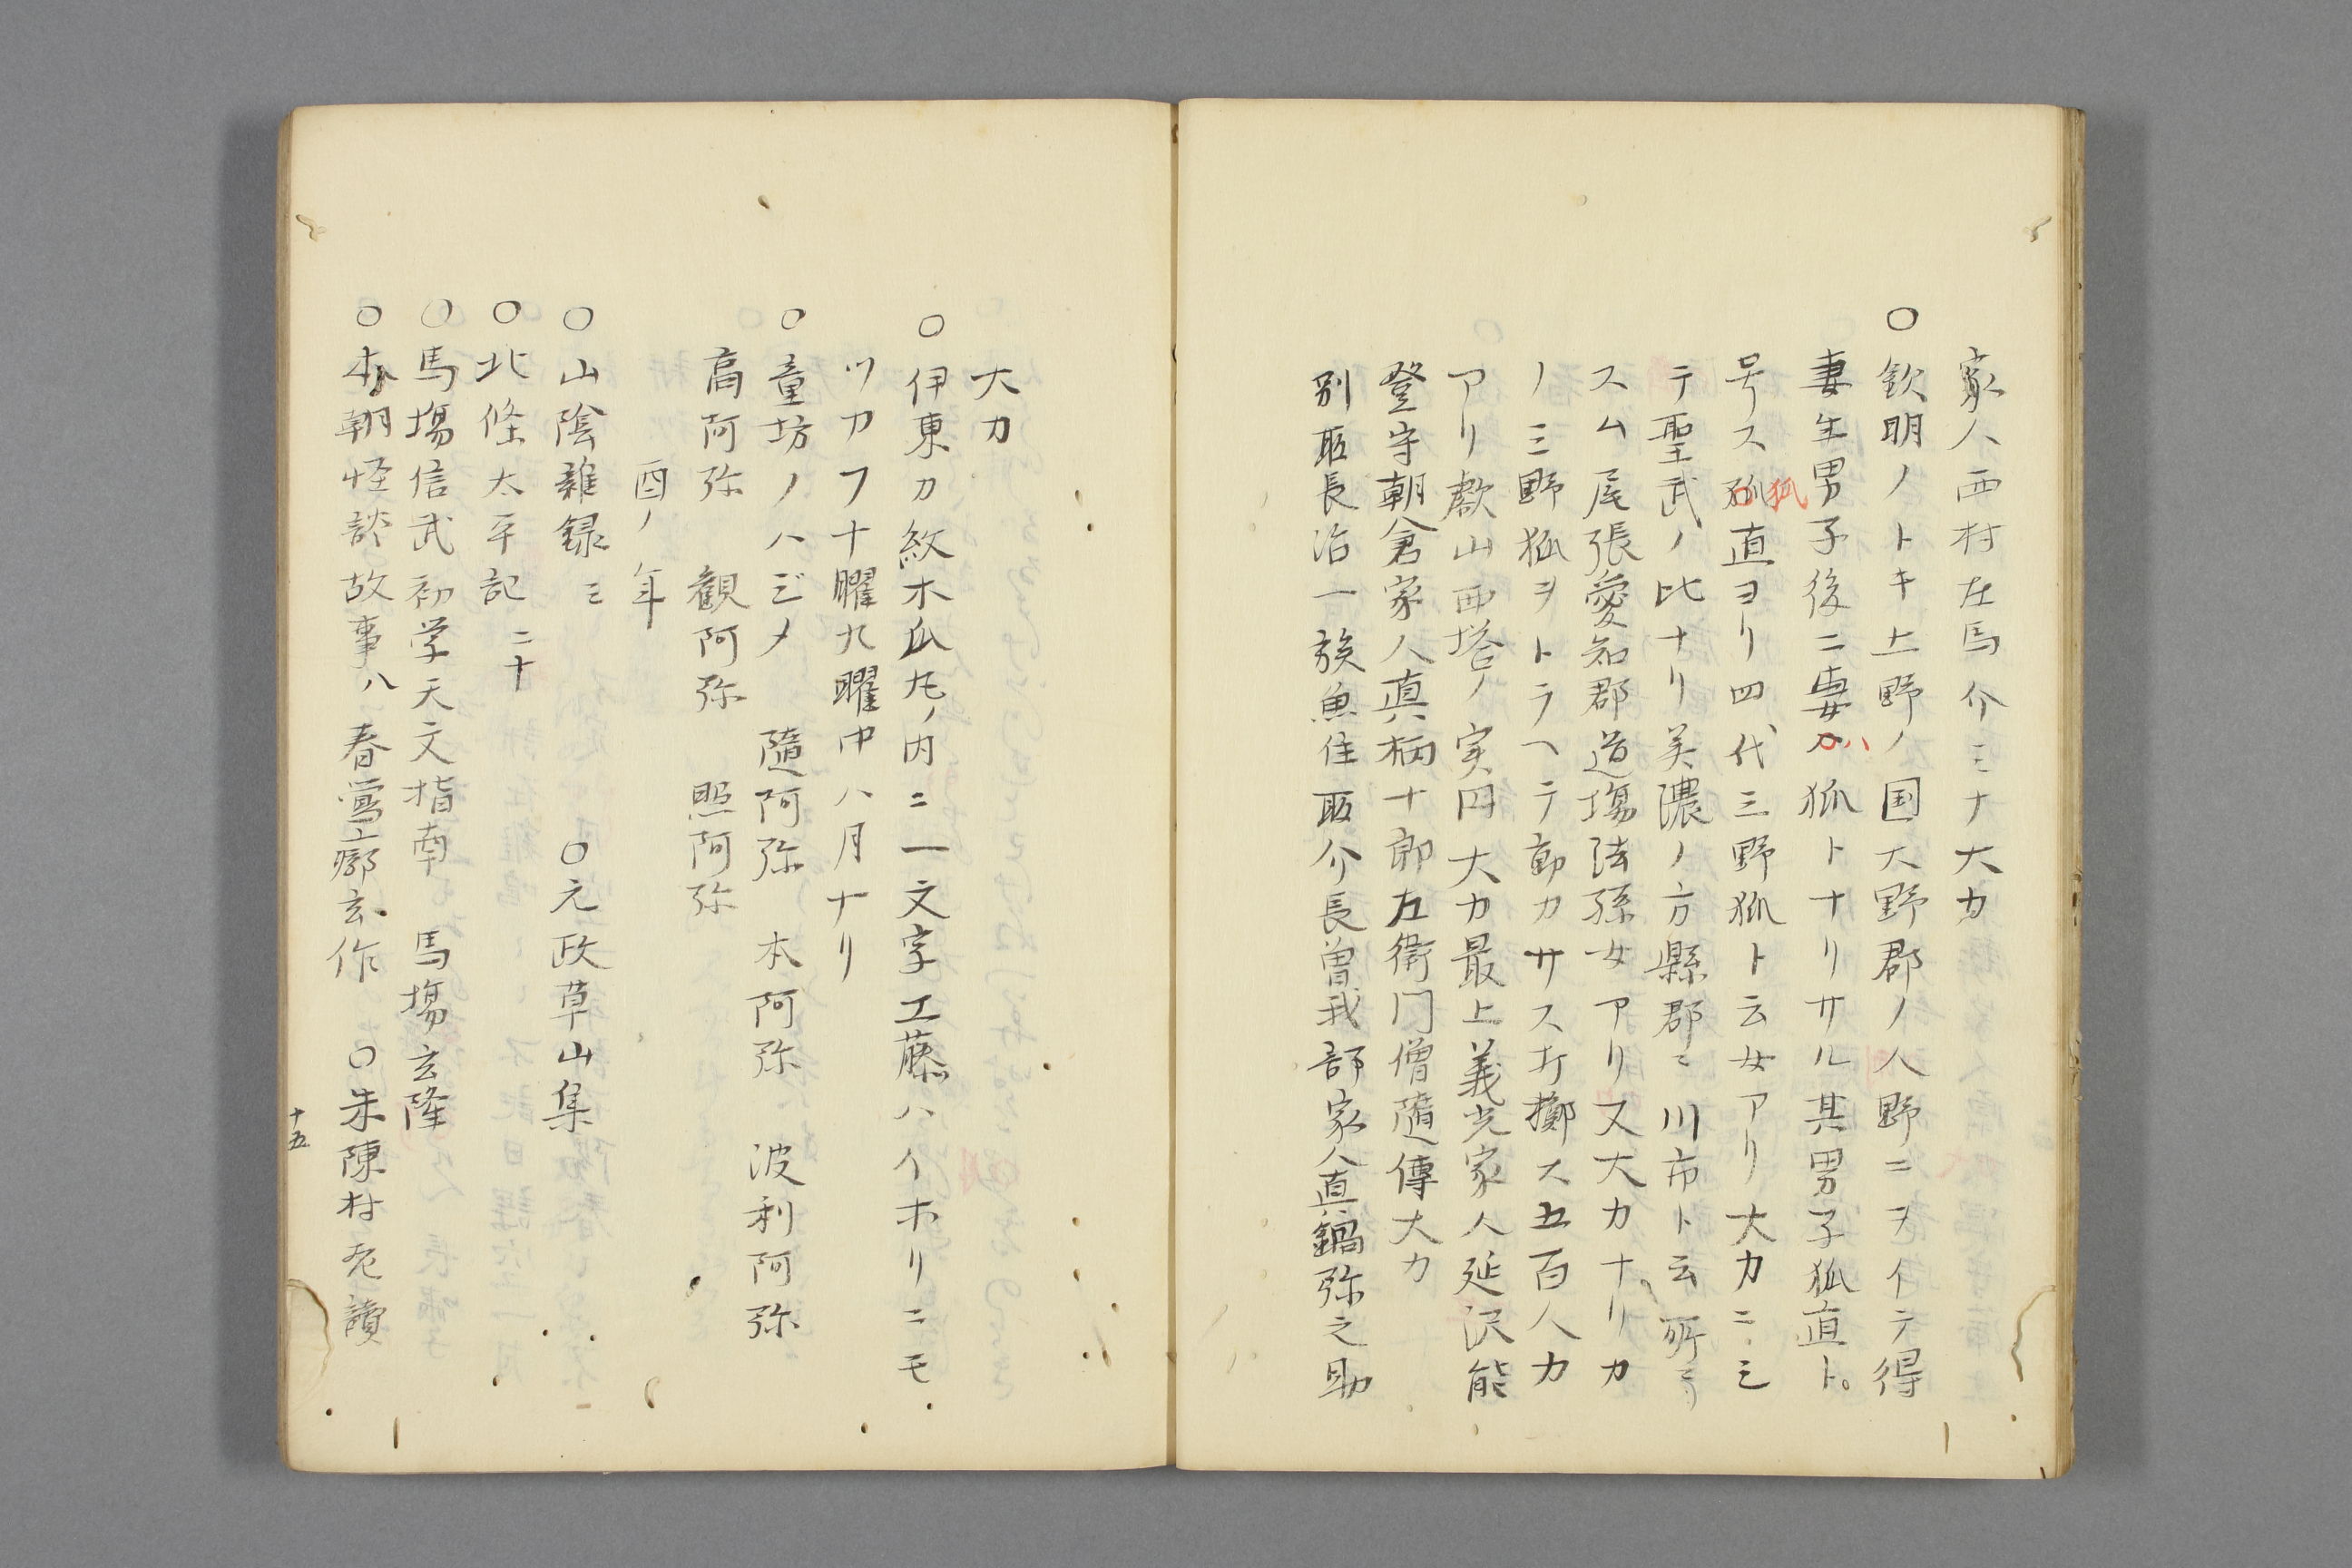 家人西村左馬介ミナ大力
○欽明ノトキ上野ノ国大野郡ノ人野ニヲイテ得
妻生男子後ニ妻カ狐トナリサル其男子狐直ト
ハ
号ス孤直ヨリ四代三野狐ト云女アリ大力ニシ
狐
テ聖武ノ比ナリ美濃ノ方縣郡ミ川市ト云所ニ
スム尾張愛知郡道場法孫女アリ又大力ナリカ
ノ三野狐ヲトラヘテ節カサス打擲ス五百人力
アリ歡山西塔ノ実円大力最上義光家人延沢能
登守朝倉家人真柄十郎左衛門僧随傳大力
別取長治一族魚住取介長曽我部家人真鍋弥之助
大力
○伊東カ紋木瓜丸ノ内ニ一文字工藤ハイホリニモ
ツカフ十曜九曜中ハ月ナリ
○童坊ノハジメ 随阿弥 本阿弥 波利阿弥
高阿弥 観阿弥 照阿弥
酉ノ年
○山陰雑録 三 ○元政草山集
○北條太平記 二十
○馬場信武初学天文指南 馬場玄隆
○本朝怪談故事八 春鶯廓玄作 ○朱陳村老讀
十五